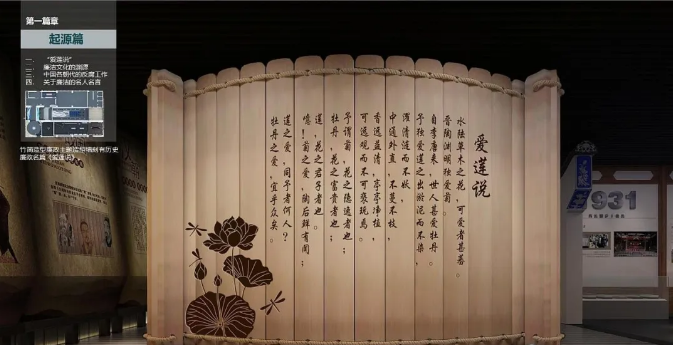 第一篇章
起源篇
一、 “爱莲说”
二、 廉洁文化的渊源
三、 中国各朝代的反腐工作
四、 关于廉洁的名人名言
爱莲说
水陆草木之花，可爱者甚蕃。
晋陶渊明独爱菊。
自李唐来，世人甚爱牡丹。
予独爱莲之出淤泥而不染，
濯清涟而不妖，
中通外直，不蔓不枝，
香远益清，亭亭净植，
可远观而不可亵玩焉。
予谓菊，花之隐逸者也；
牡丹，花之富贵者也；
莲，花之君子者也。
噫！菊之爱，陶后鲜有闻；
莲之爱，同予者何人？
牡丹之爱，宜乎众矣。
931